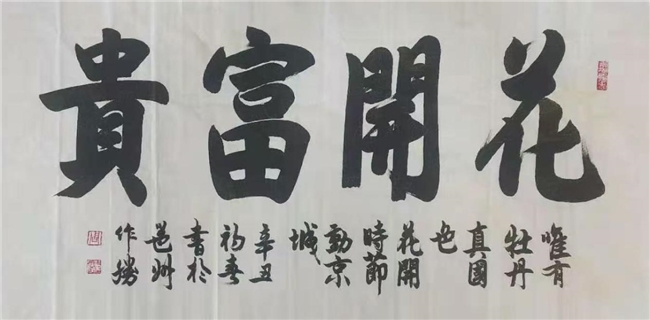 花開富貴
唯有
牡丹
真國
色
花開
時節
動京
城
辛丑
初春
書於
邕州
作勝